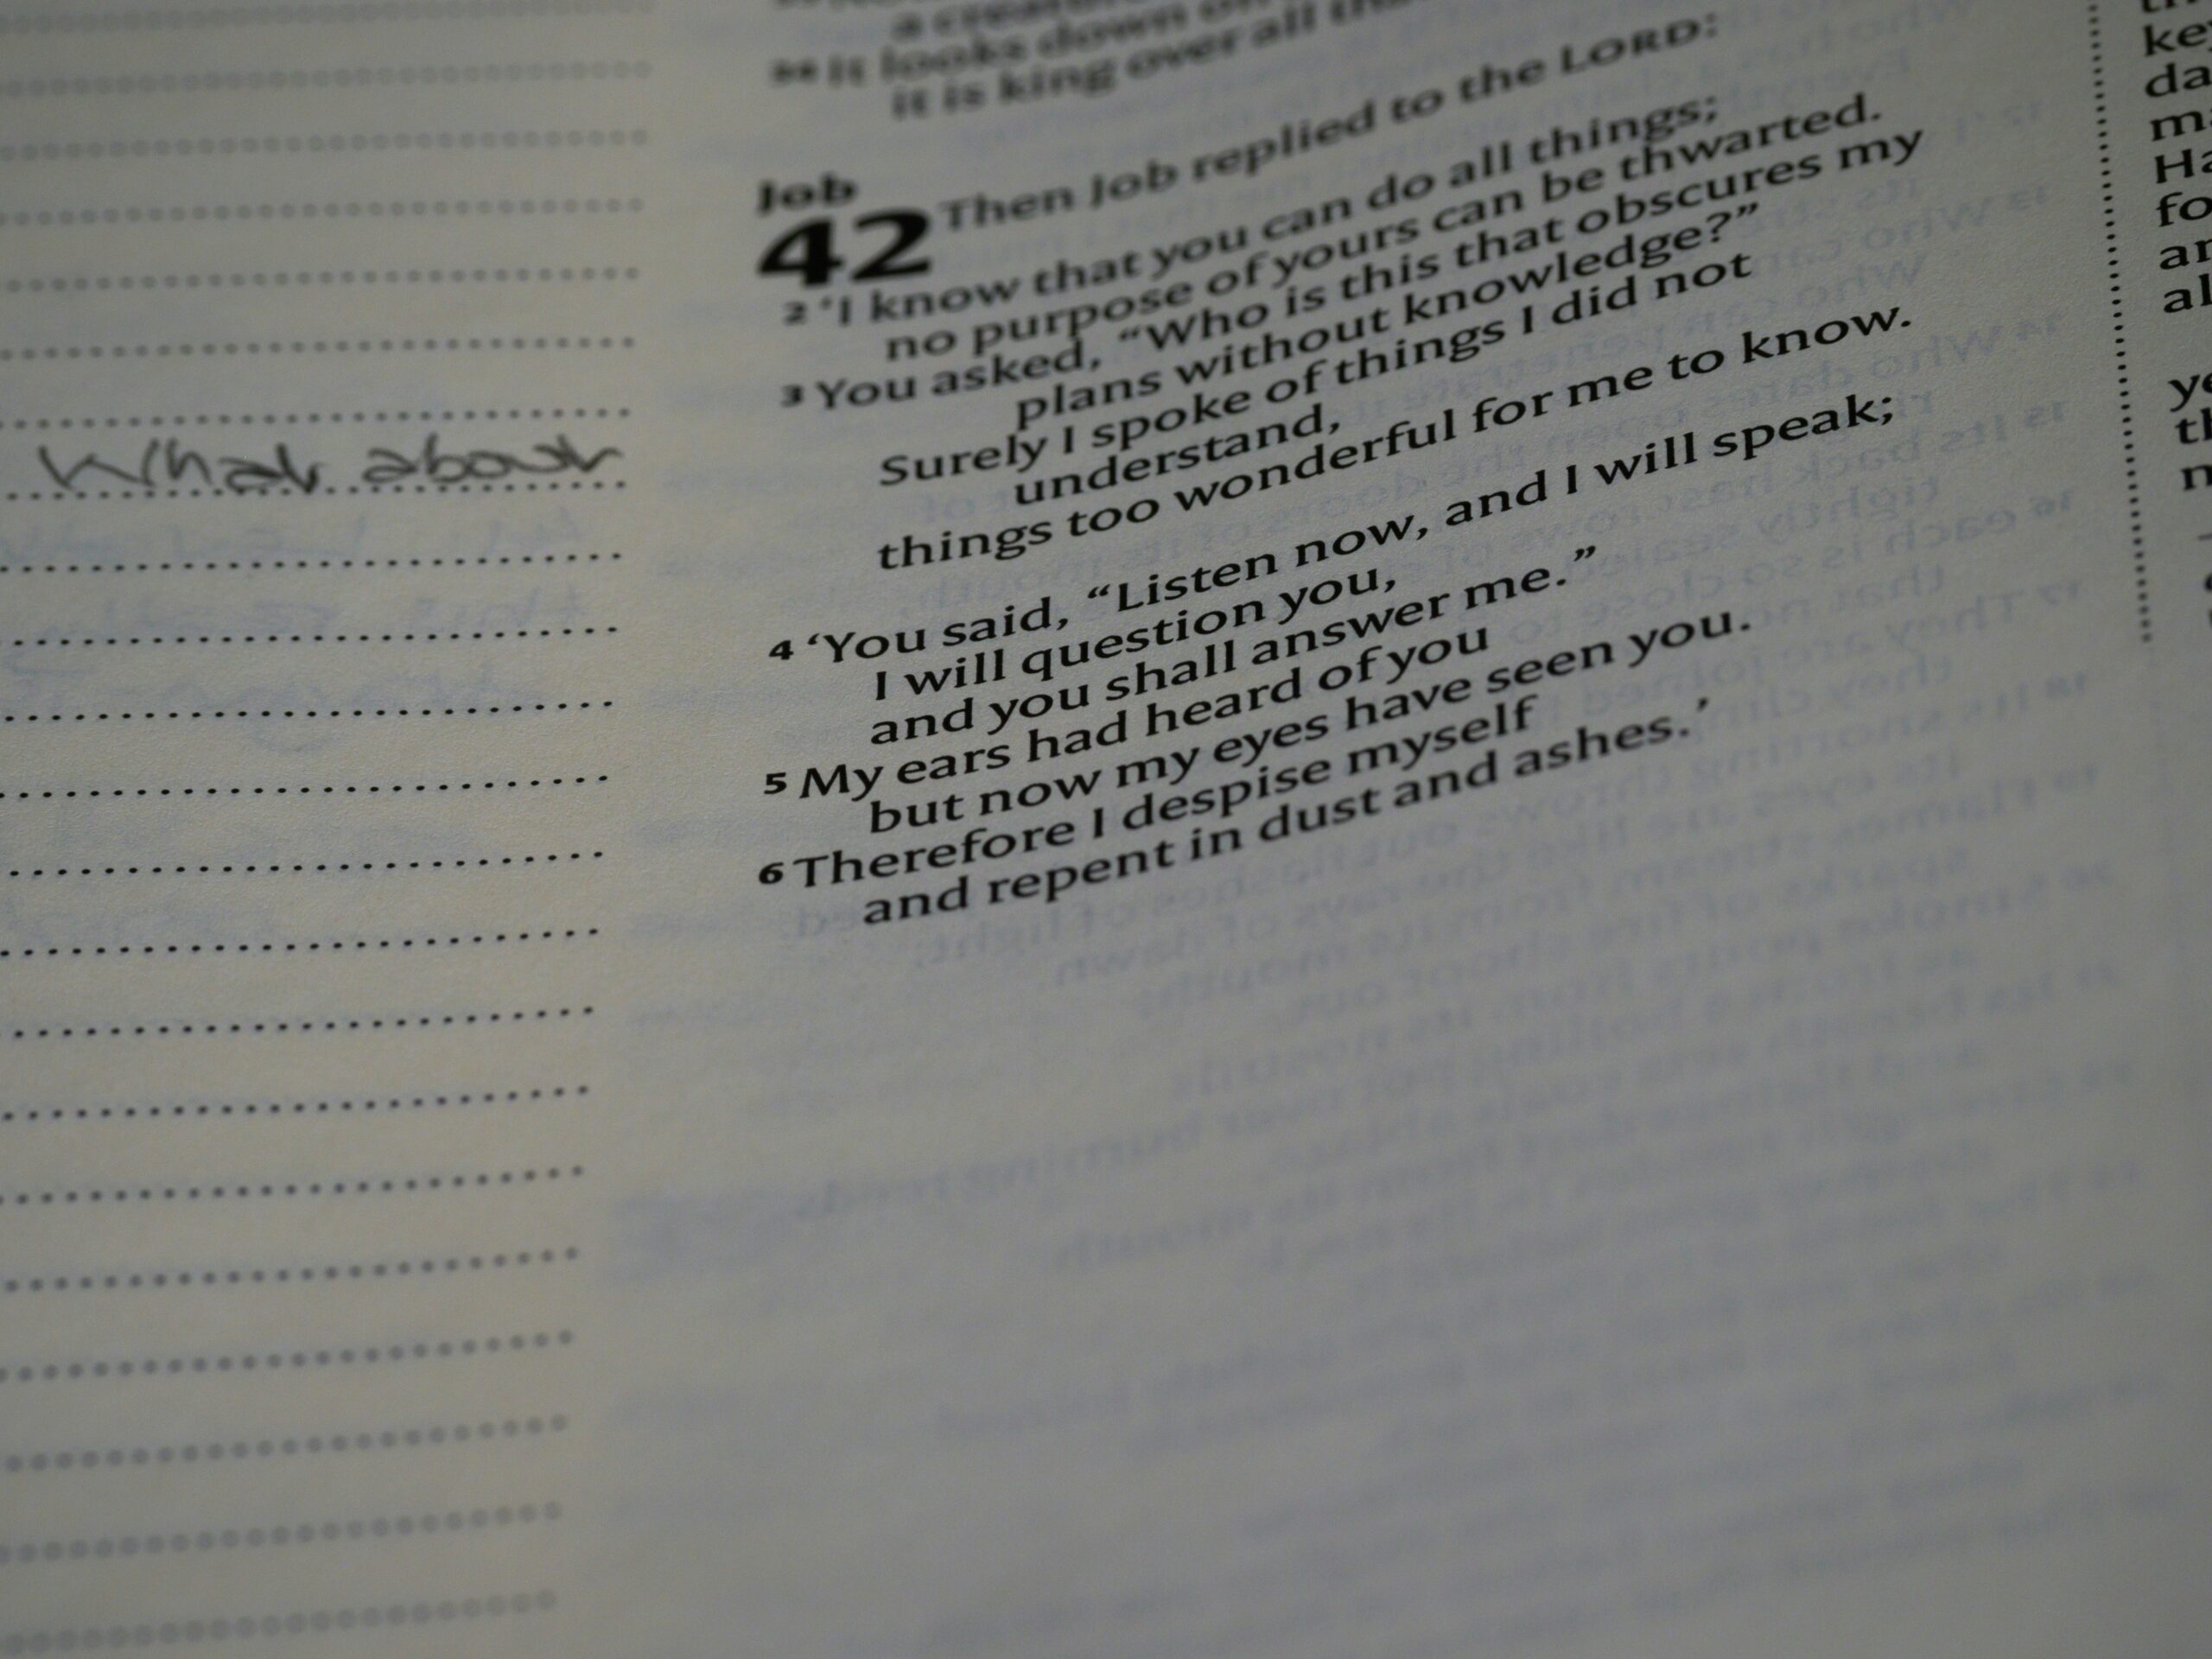 What about
it looks down on
it is king over all
Job
42 Then Job replied to the LORD:
2 ‘I know that you can do all things;
no purpose of yours can be thwarted.
3 You asked, “Who is this that obscures my
plans without knowledge?”
Surely I spoke of things I did not
understand,
things too wonderful for me to know.
4 ‘You said, “Listen now, and I will speak;
I will question you,
and you shall answer me.”
5 My ears had heard of you
but now my eyes have seen you.
6 Therefore I despise myself
and repent in dust and ashes.’